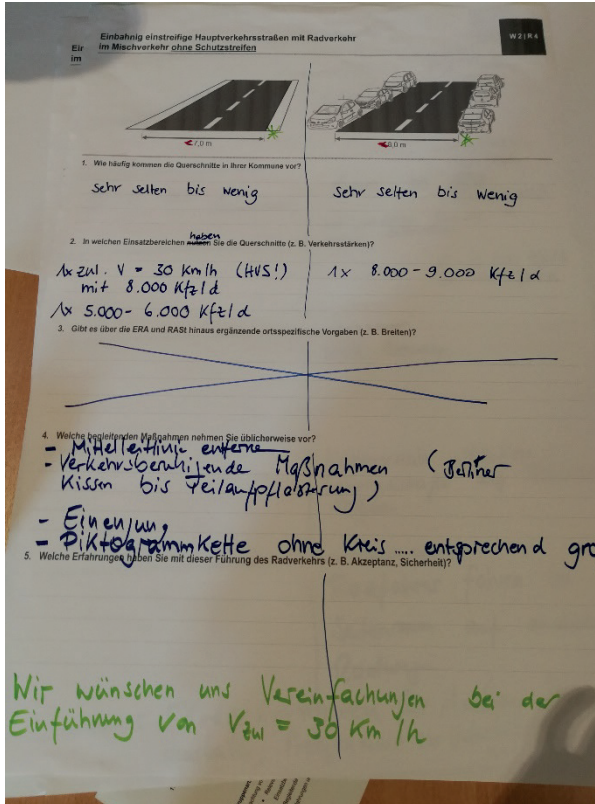 Einbahnig einstreifige Hauptverkehrsstraßen mit Radverkehr
im Mischverkehr ohne Schutzstreifen
W2|R4
Eir
im
<7,0 m
<6,0 m
1. Wie häufig kommen die Querschnitte in Ihrer Kommune vor?
sehr selten bis wenig
sehr selten bis wenig
haben
2. In welchen Einsatzbereichen nutzen Sie die Querschnitte (z. B. Verkehrsstärken)?
1x zul. V = 30 km/h (HVS!)
mit 8.000 Kfz/d
1x 5.000 - 6.000 Kfz/d
1x 8.000 - 9.000 Kfz/d
3. Gibt es über die ERA und RASt hinaus ergänzende ortsspezifische Vorgaben (z. B. Breiten)?
4. Welche begleitenden Maßnahmen nehmen Sie üblicherweise vor?
- Mittelleitlinie entferne
- Verkehrsberuhigende Maßnahmen (Berliner
Kissen bis Teilaufpflasterung)
- Einengung
- Piktogrammkette ohne Kreis ..... entsprechend gro
5. Welche Erfahrungen haben Sie mit dieser Führung des Radverkehrs (z. B. Akzeptanz, Sicherheit)?
Wir wünschen uns Vereinfachungen bei der
Einführung von Vzul = 30 km/h